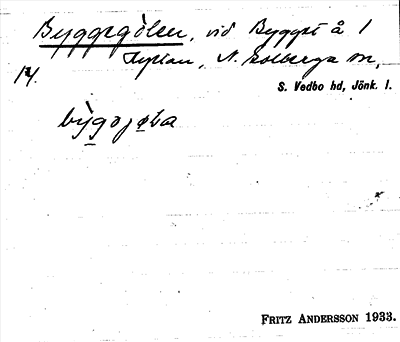 Byggegölen, vid Byggst å 1
N. Solberga sn,
14.
S. Vedbo hd, Jönk. l.
bỳgəjøḷa
FRITZ ANDERSSON 1933.